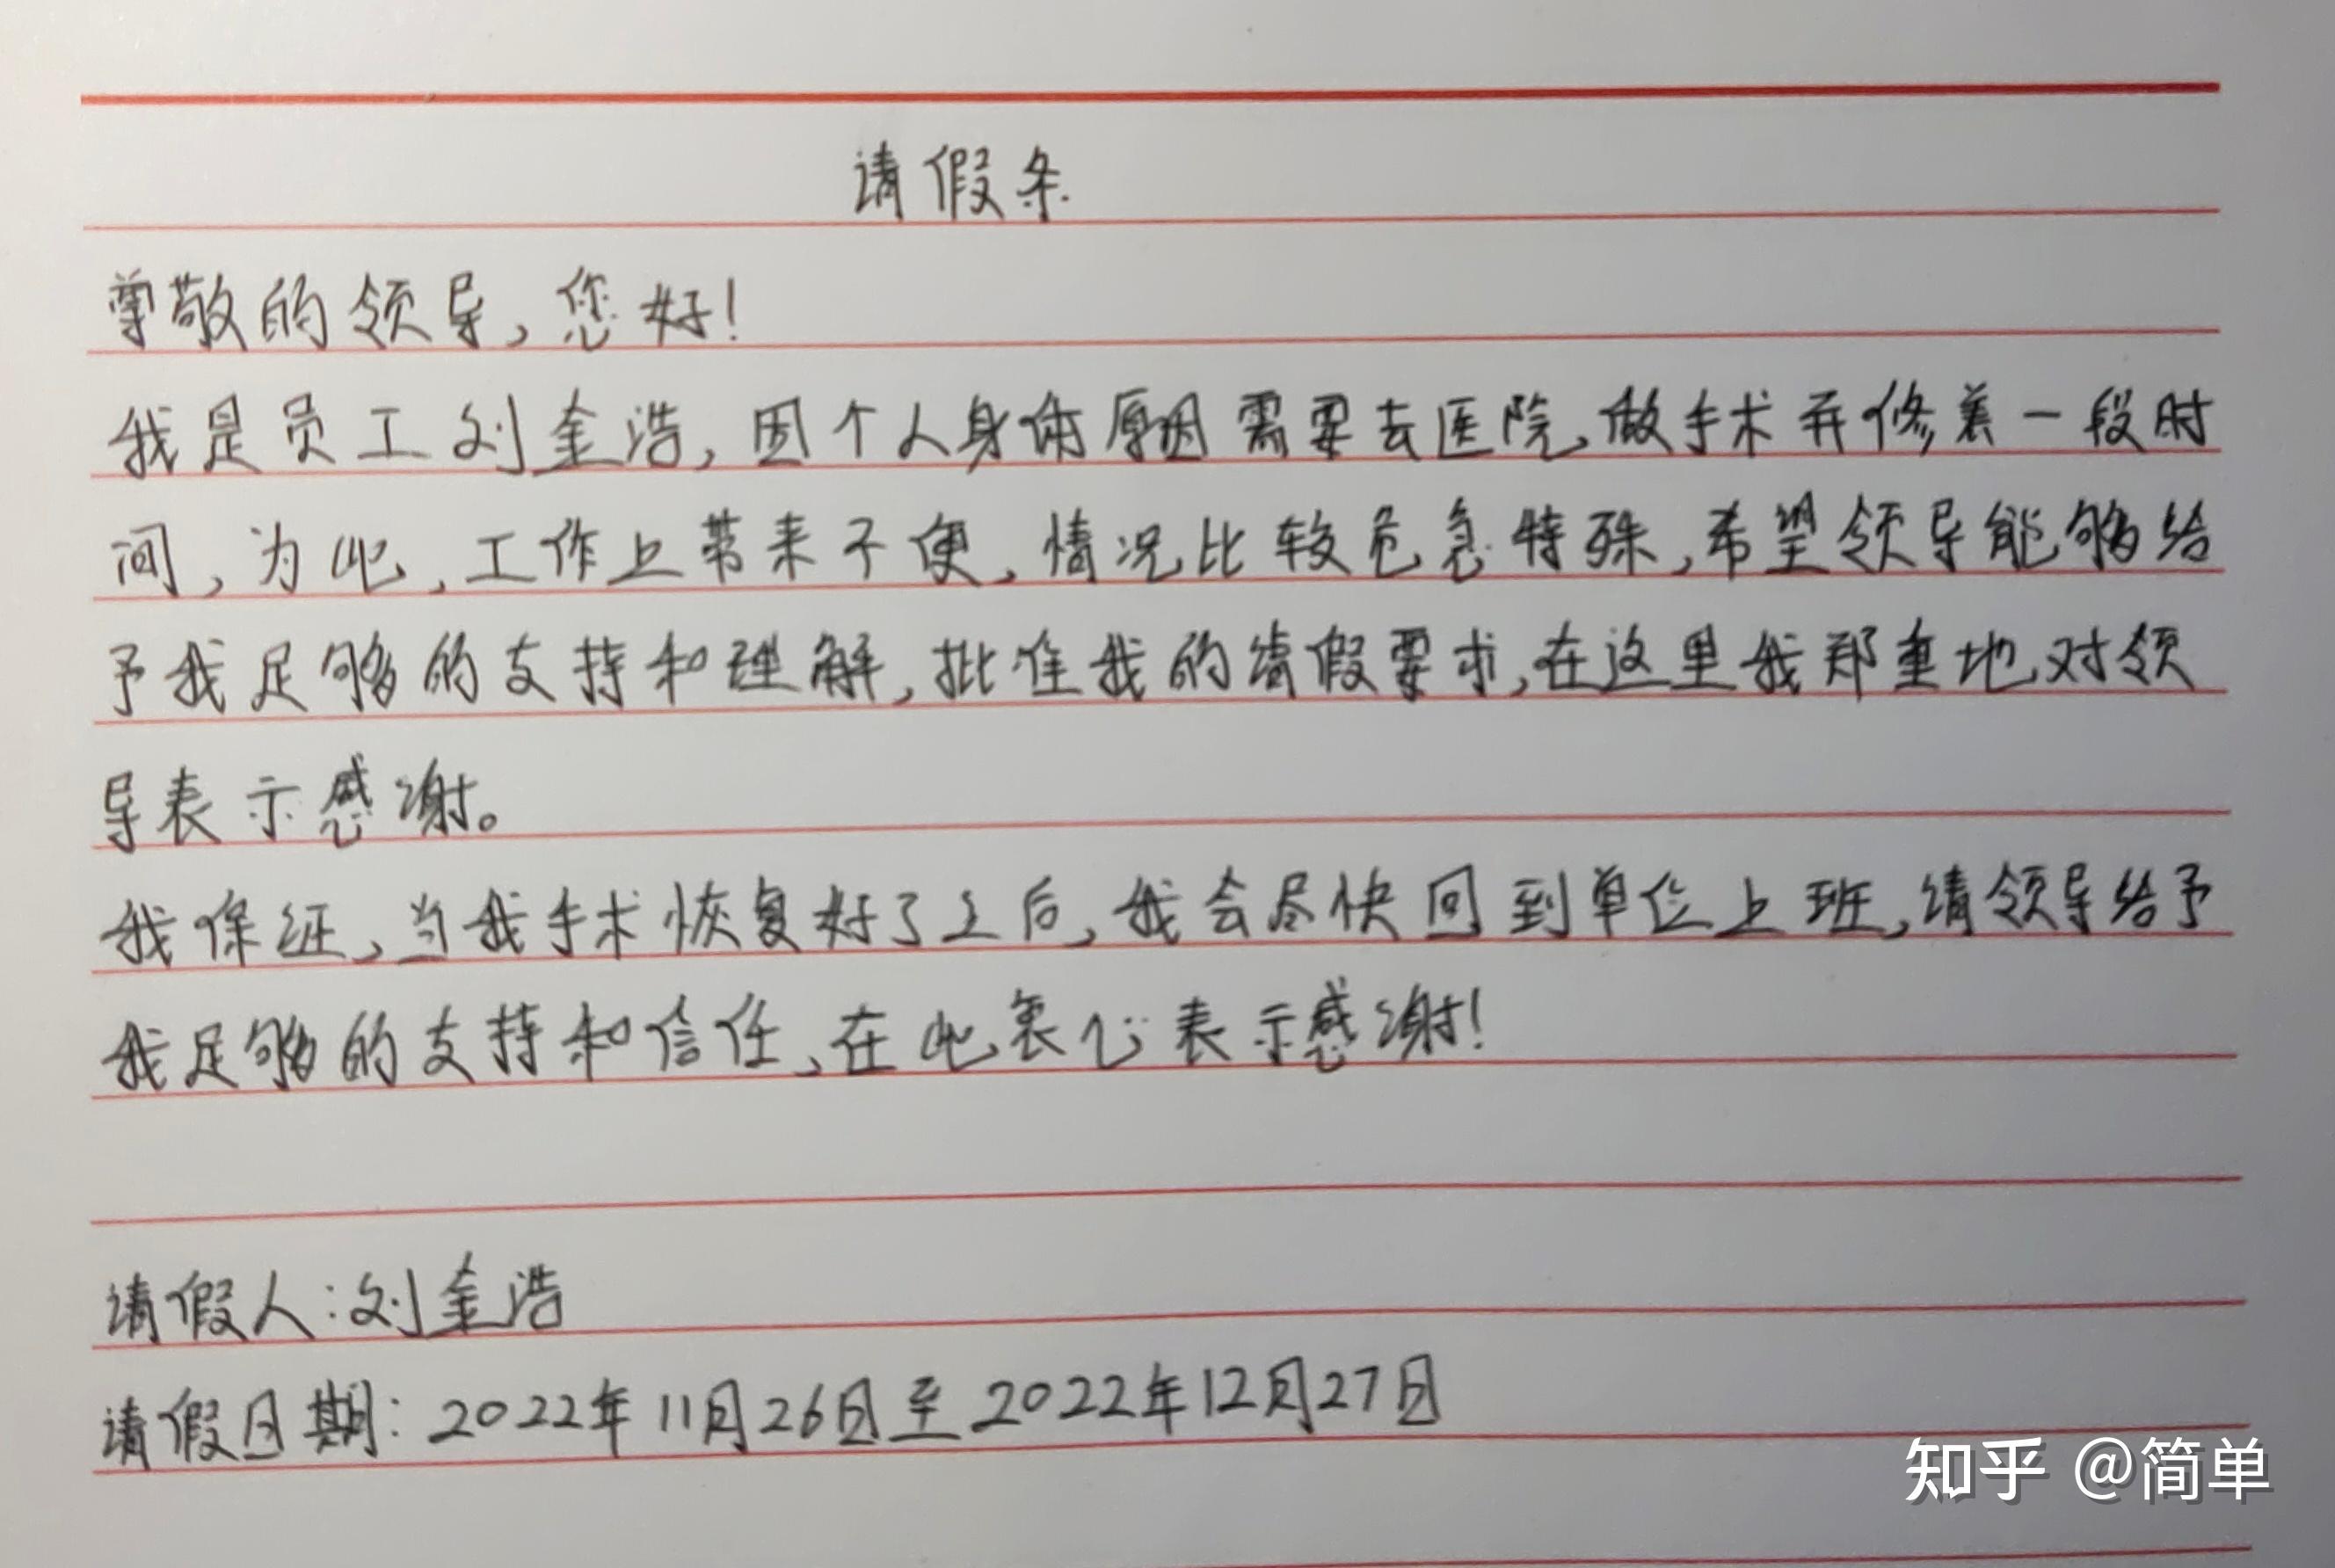 请假条
尊敬的领导,您好!
我是员工刘金浩,因个人身体原因需要去医院,做手术并修养一段时
间,为此,工作上带来不便,情况比较危急特殊,希望领导能够给
予我足够的支持和理解,批准我的请假要求,在这里我郑重地对领
导表示感谢。
我保证,当我手术恢复好了之后,我会尽快回到单位上班,请领导给予
我足够的支持和信任,在此衷心表示感谢!
请假人:刘金浩
请假日期:2022年11月26日至2022年12月27日
知乎 @简单